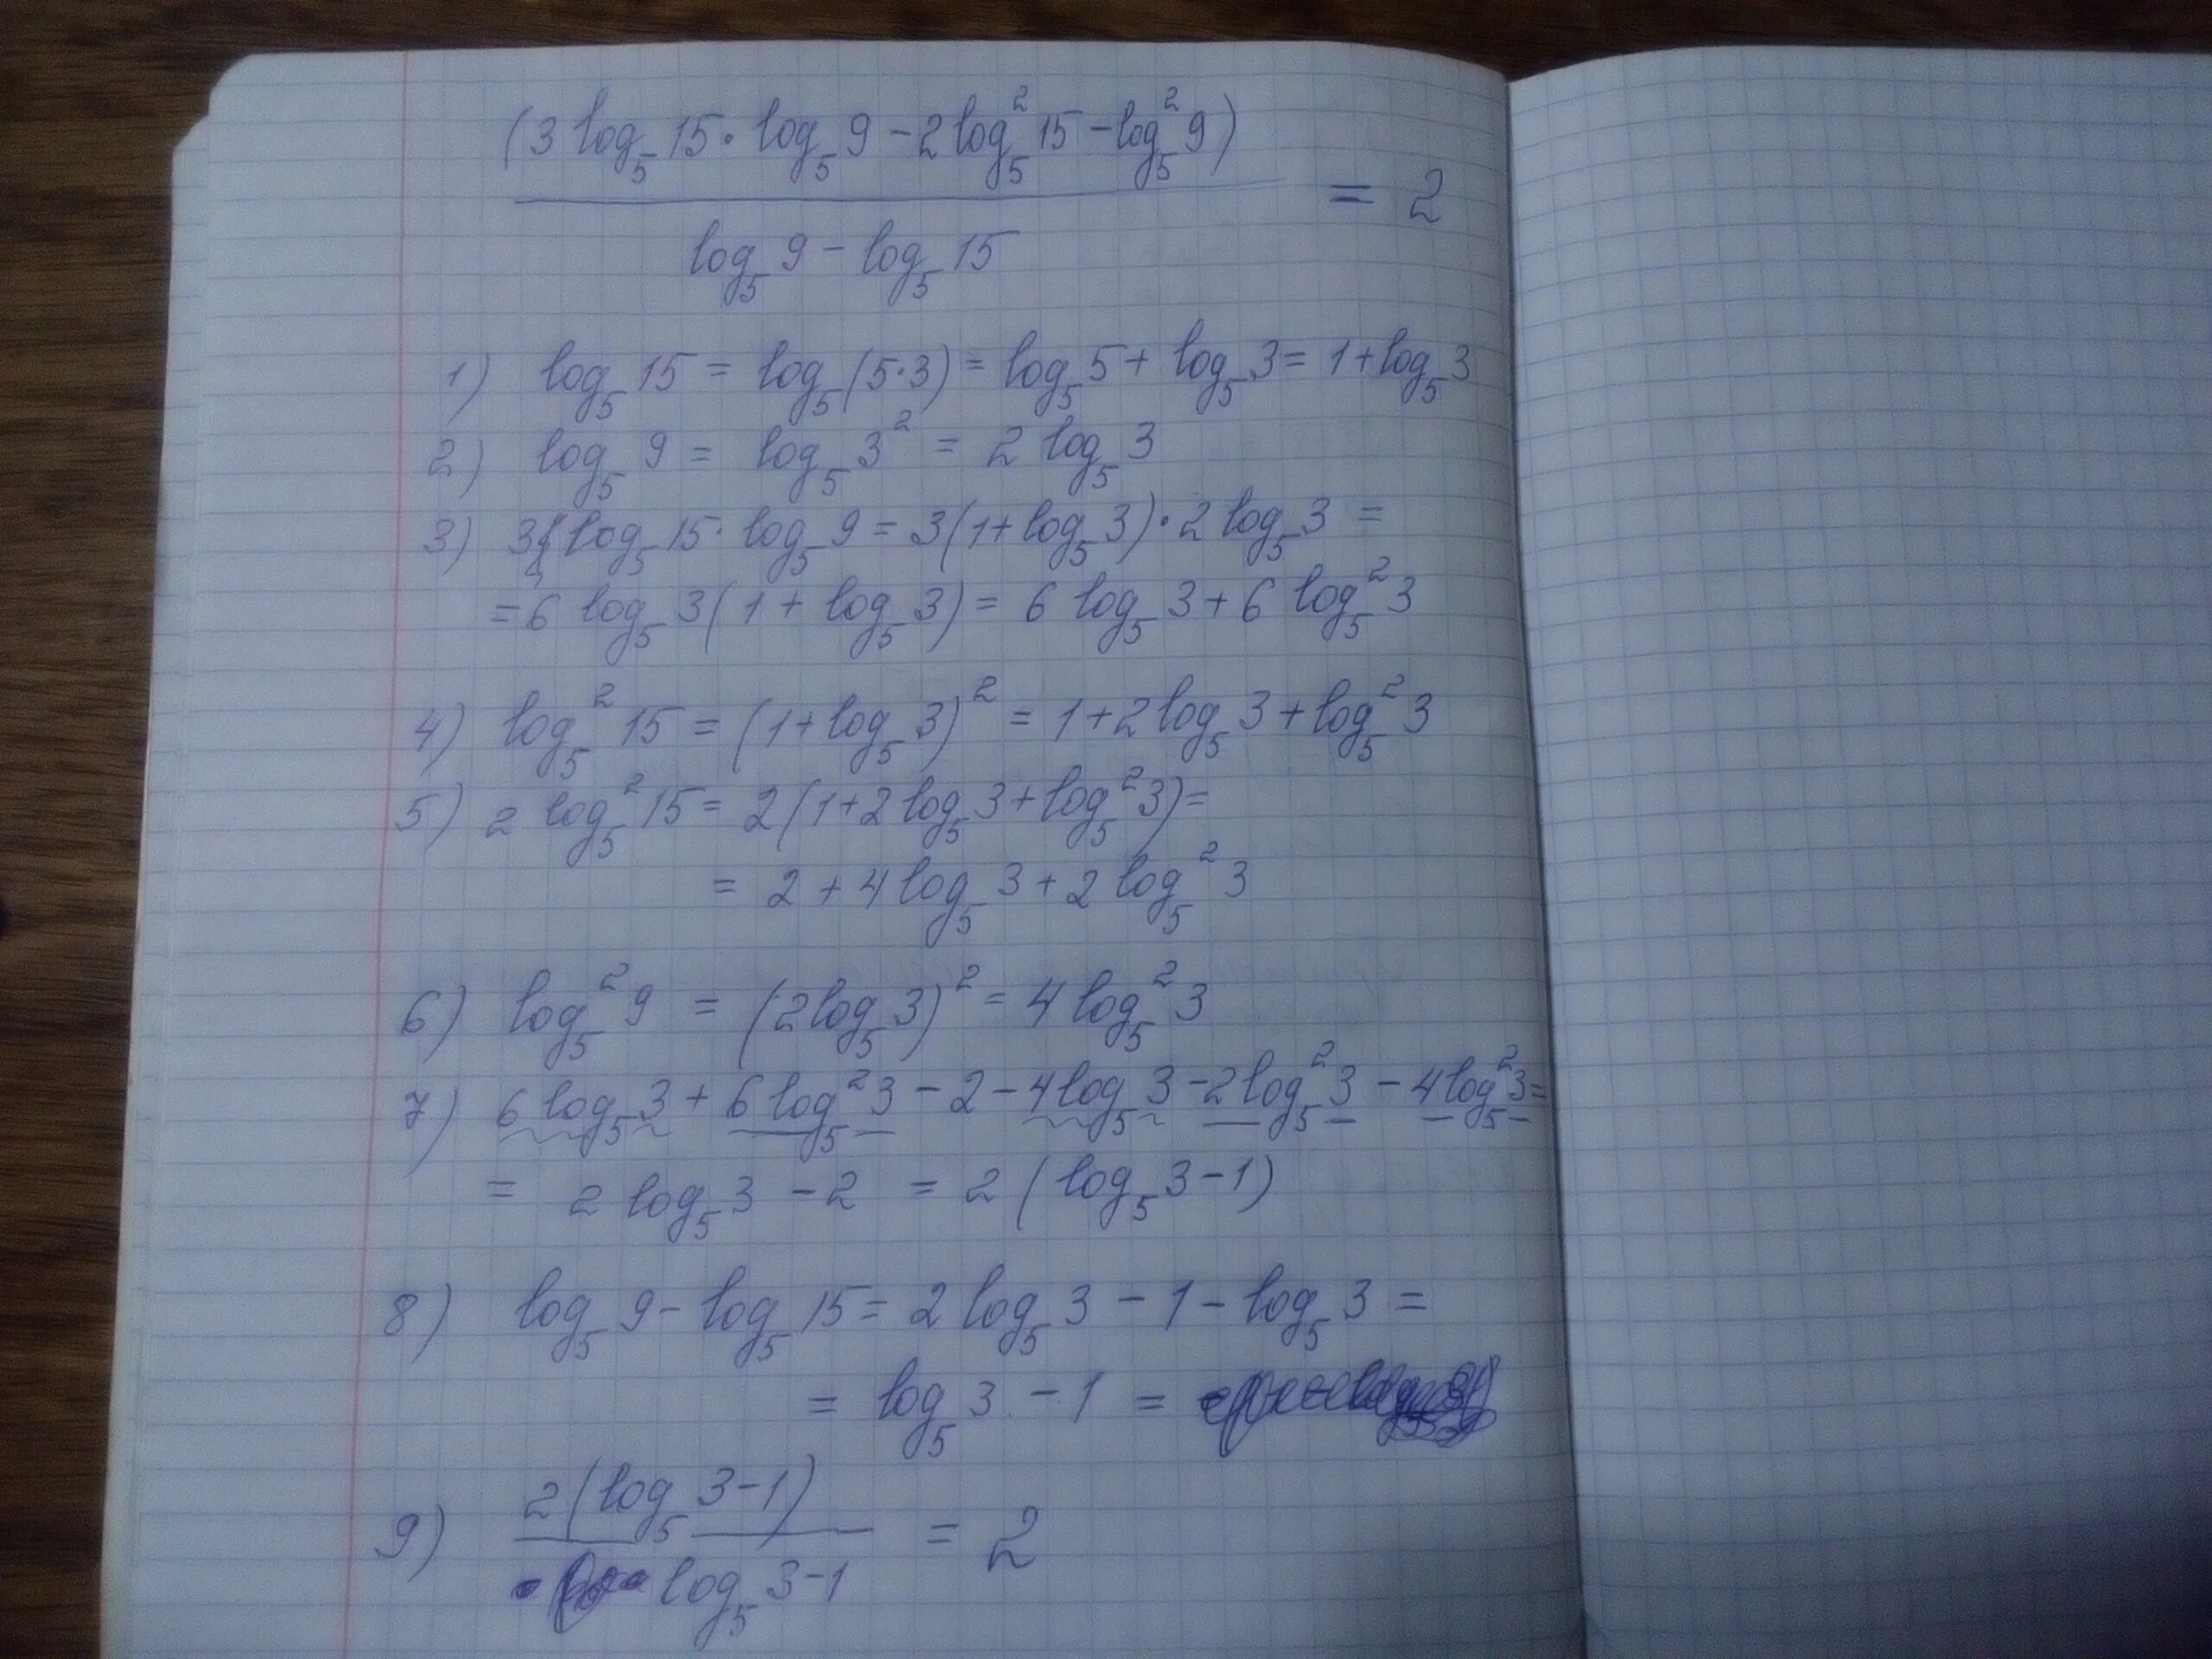 (3 log₅ 15 · log₅ 9 − 2 log₅² 15 − log₅² 9)
= 2
log₅ 9 − log₅ 15
1) log₅ 15 = log₅ (5·3) = log₅ 5 + log₅ 3 = 1 + log₅ 3
2) log₅ 9 = log₅ 3² = 2 log₅ 3
3) 3 log₅ 15 · log₅ 9 = 3(1 + log₅ 3) · 2 log₅ 3 =
= 6 log₅ 3 (1 + log₅ 3) = 6 log₅ 3 + 6 log₅² 3
4) log₅² 15 = (1 + log₅ 3)² = 1 + 2 log₅ 3 + log₅² 3
5) 2 log₅² 15 = 2(1 + 2 log₅ 3 + log₅² 3) =
= 2 + 4 log₅ 3 + 2 log₅² 3
6) log₅² 9 = (2 log₅ 3)² = 4 log₅² 3
7) 6 log₅ 3 + 6 log₅² 3 − 2 − 4 log₅ 3 − 2 log₅² 3 − 4 log₅² 3 =
= 2 log₅ 3 − 2 = 2 (log₅ 3 − 1)
8) log₅ 9 − log₅ 15 = 2 log₅ 3 − 1 − log₅ 3 =
= log₅ 3 − 1 =
9) 2(log₅ 3 − 1)
= 2
log₅ 3 − 1